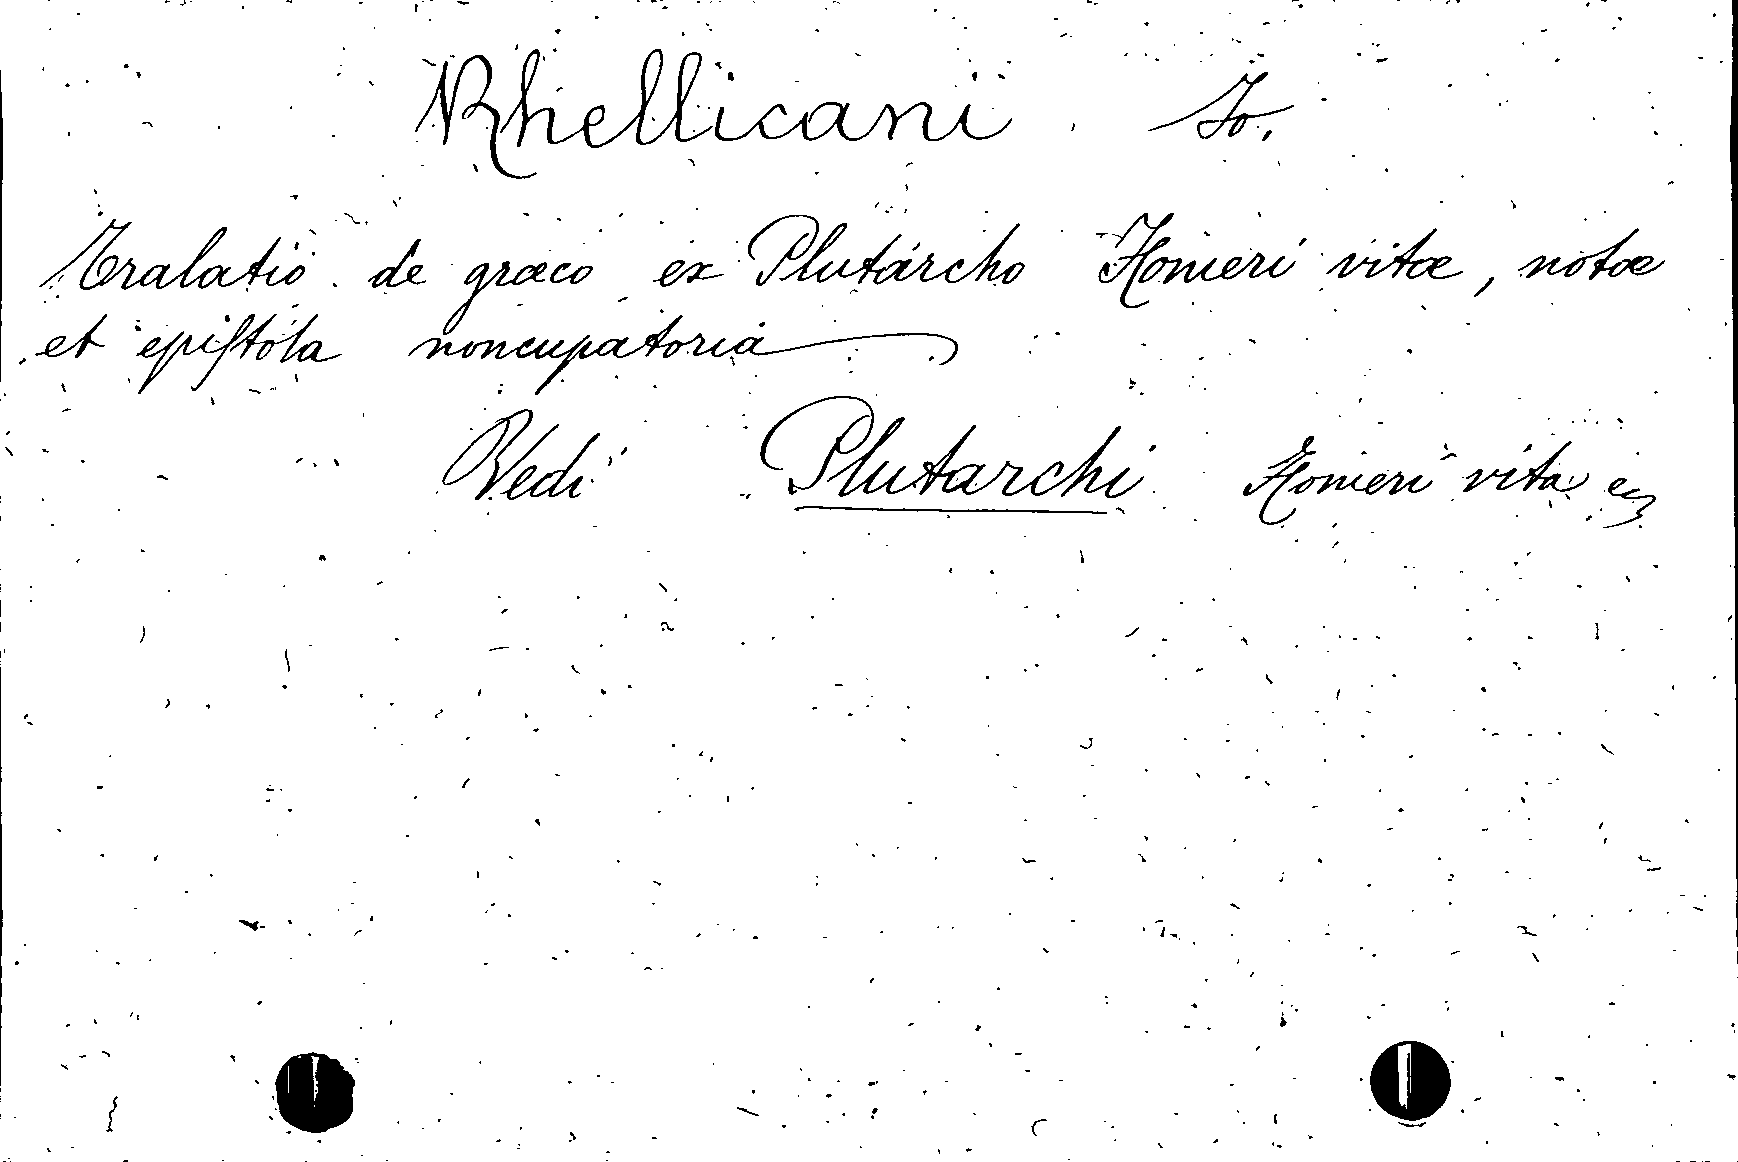 Rhellicani Jo.
Tralatio de græco ex Plutarcho Homeri vitæ, notæ
et epistola noncupatoria
Vedi Plutarchi Homeri vita